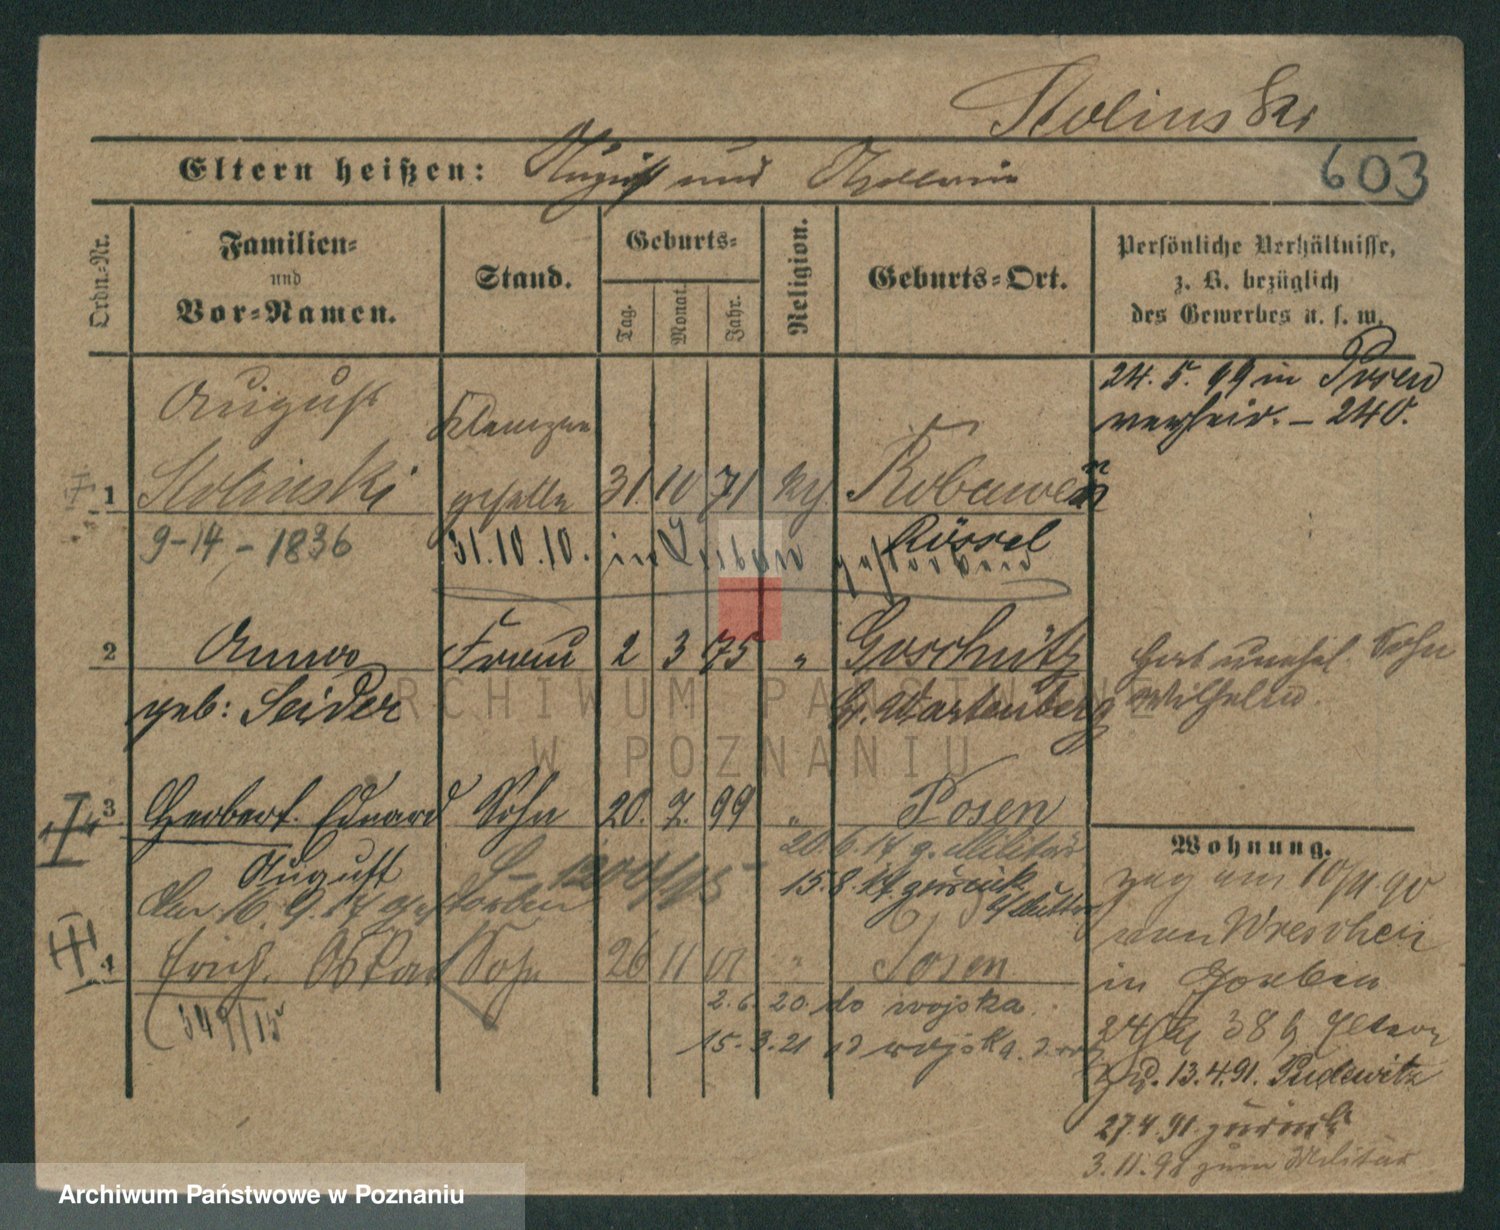 Stolinski
Eltern heißen: August und
603
Ordn.-Nr.
Familien-
und
Vor-Namen.
Stand.
Geburts-
Tag.
Monat.
Jahr.
Religion.
Geburts-Ort.
Persönliche Verhältnisse,
z. B. bezüglich
des Gewerbes u. s. w.
24. 5. 99 in Posen
verheir. – 240.
August
Klempner
1 Stolinski geselle 31. 10 71 kth Robawen
9-14 - 1836
31.10.10. in gestorben
Rössel
2 Anna Frau 2 3 75 " Goschütz
geb: Seider
Gr. Wartenberg
Hat unehel. Sohn
Wilhelm.
3 Herbert Eduard Sohn 20. 7. 99 " Posen
August
20.6.17 z. Militär
15.8.17 zurück
z/ Mutter
Den 16. 9. 17 gestorben
4 Erich, Oskar Sohn 26 11 01 " Posen
(349/15
2. 6. 20. do wojska
15. 3. 21 od wojska.
Wohnung.
zog am 10/11.90
von Wreschen
in
24/11 38 b/
13.4.91. Pudewitz
27.4.91 zurück
3.11.91 zum Militär
ARCHIWUM PAŃSTWOWE
W POZNANIU
Archiwum Państwowe w Poznaniu